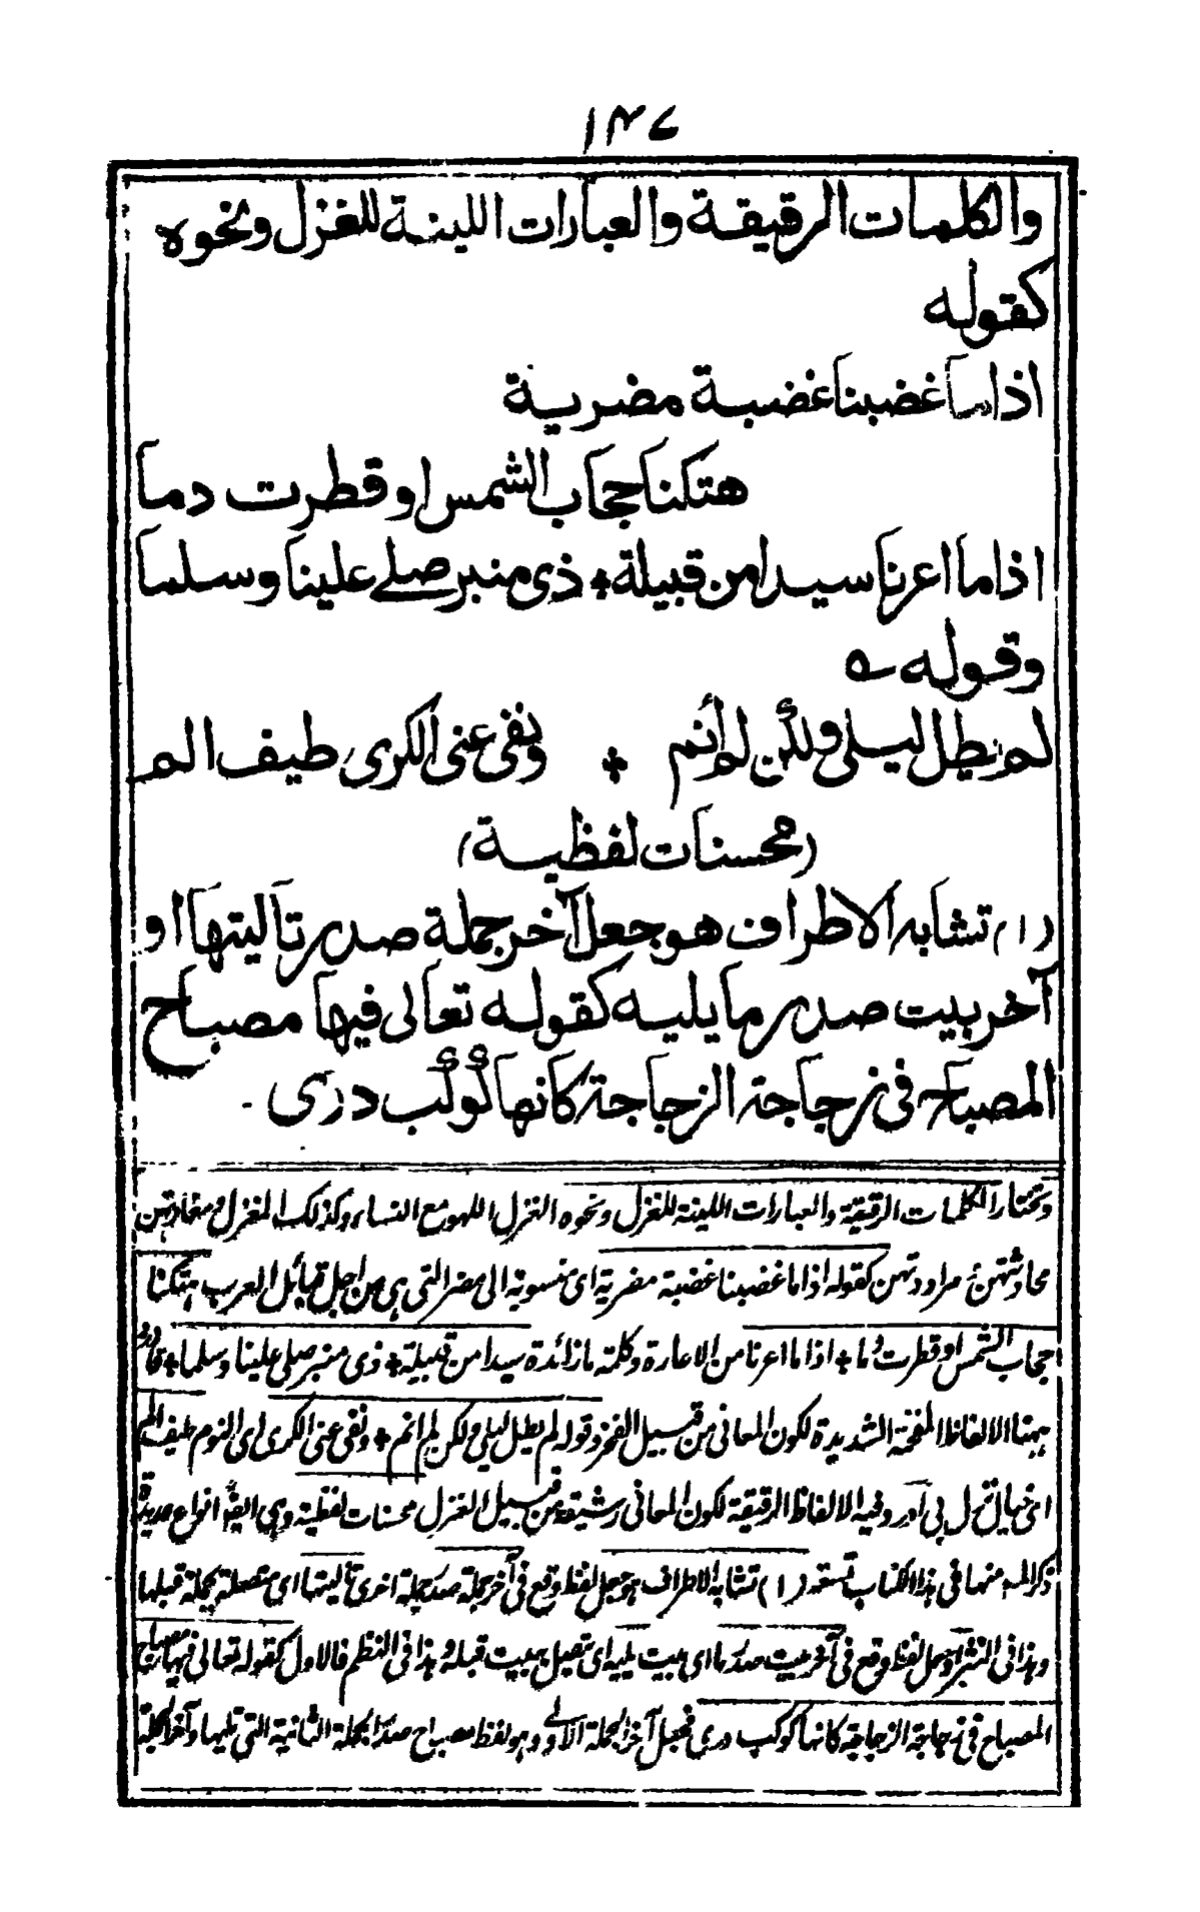 ١٤٧
والكلمات الرقيقة والعبارات اللينة للغزل ونحوه
كقوله
اذا ما غضبنا غضبة مضرية
هتكنا حجاب الشمس او قطرت دما
اذا ما اعرنا سيدا من قبيلة + ذرى منبر صلى علينا وسلما
وقوله ؎
لم يطل ليلى ولكن لم أنم + ونفى عنى الكرى طيف الم
(محسنات لفظية)
(١) تشابه الاطراف هو جعل آخر جملة صدر تاليتها او
آخر بيت صدر ما يليه كقوله تعالى فيها مصباح
المصباح فى زجاجة الزجاجة كانها كوكب درى -
وتختار الكلمات الرقيقة والعبارات اللينة للغزل ونحوه الغزل اللهو مع النساء وكذلك المغزل و مغازلتهن
محادثتهن و مراودتهن كقوله اذا ما غضبنا غضبة مضرية اى منسوبة الى مضر التى هى من اجل قبائل العرب هتكنا
حجاب الشمس او قطرت دما + اذا ما اعرنا من الاعارة وكلمة ما زائدة سيدا من قبيلة + ذرى منبر صلى علينا وسلما +
ههنا الالفاظ المفخمة الشديدة لكون المعانى من قبيل الفخر وقوله لم يطل ليلى ولكن لم انم + ونفى عنى الكرى اى النوم طيف الم
اى خيال نزل بى وفيه الالفاظ الرقيقة لكون المعانى رشيقة من قبيل الغزل محسنات لفظية وهى ايضا انواع عديدة
ذكر المص منها فى هذا الكتاب تسعة (١) تشابه الاطراف هو جعل لفظ وقع فى آخر جملة صدر جملة اخرى تاليتها اى متصلة بجملة قبلها
وهذا فى النثر او جعل لفظ وقع فى آخر بيت صدر ما اى بيت يليه اى يتصل ببيت قبله وهذا فى النظم فالاول كقوله تعالى فيها مصباح
المصباح فى زجاجة الزجاجة كانها كوكب درى فجعل آخر الجملة الاولى وهو لفظ مصباح صدر الجملة الثانية التى تليها وآخر الجملة